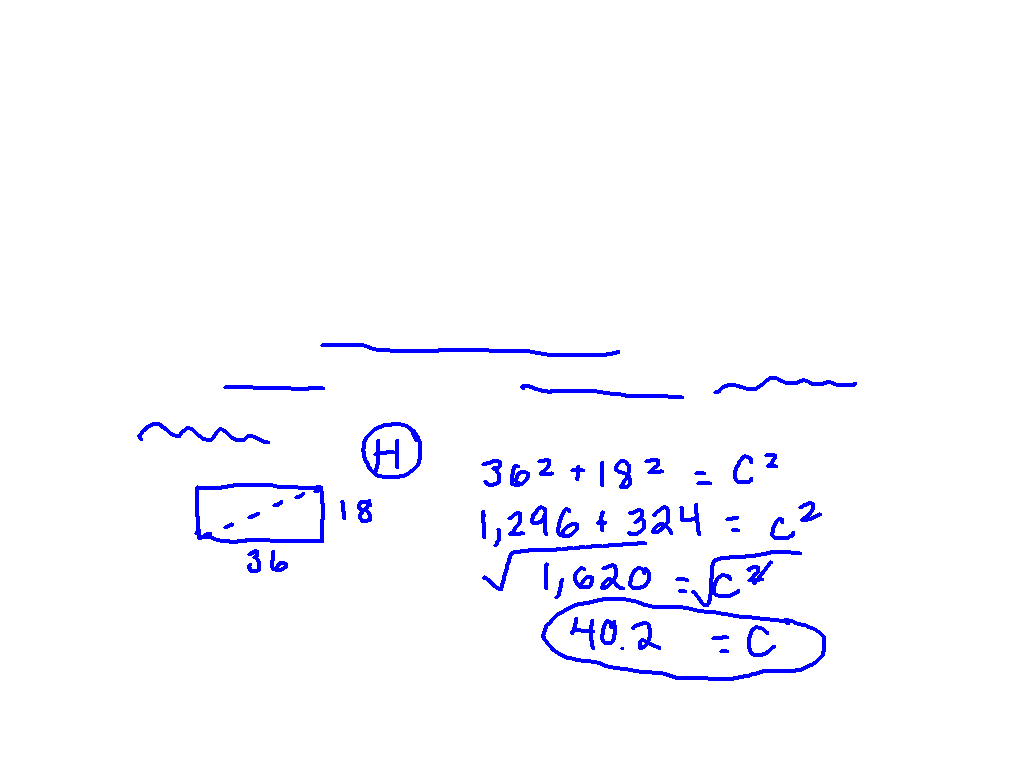 H
18
36
36² + 18² = C²
1,296 + 324 = c²
√1,620 = √C²
40.2 = C